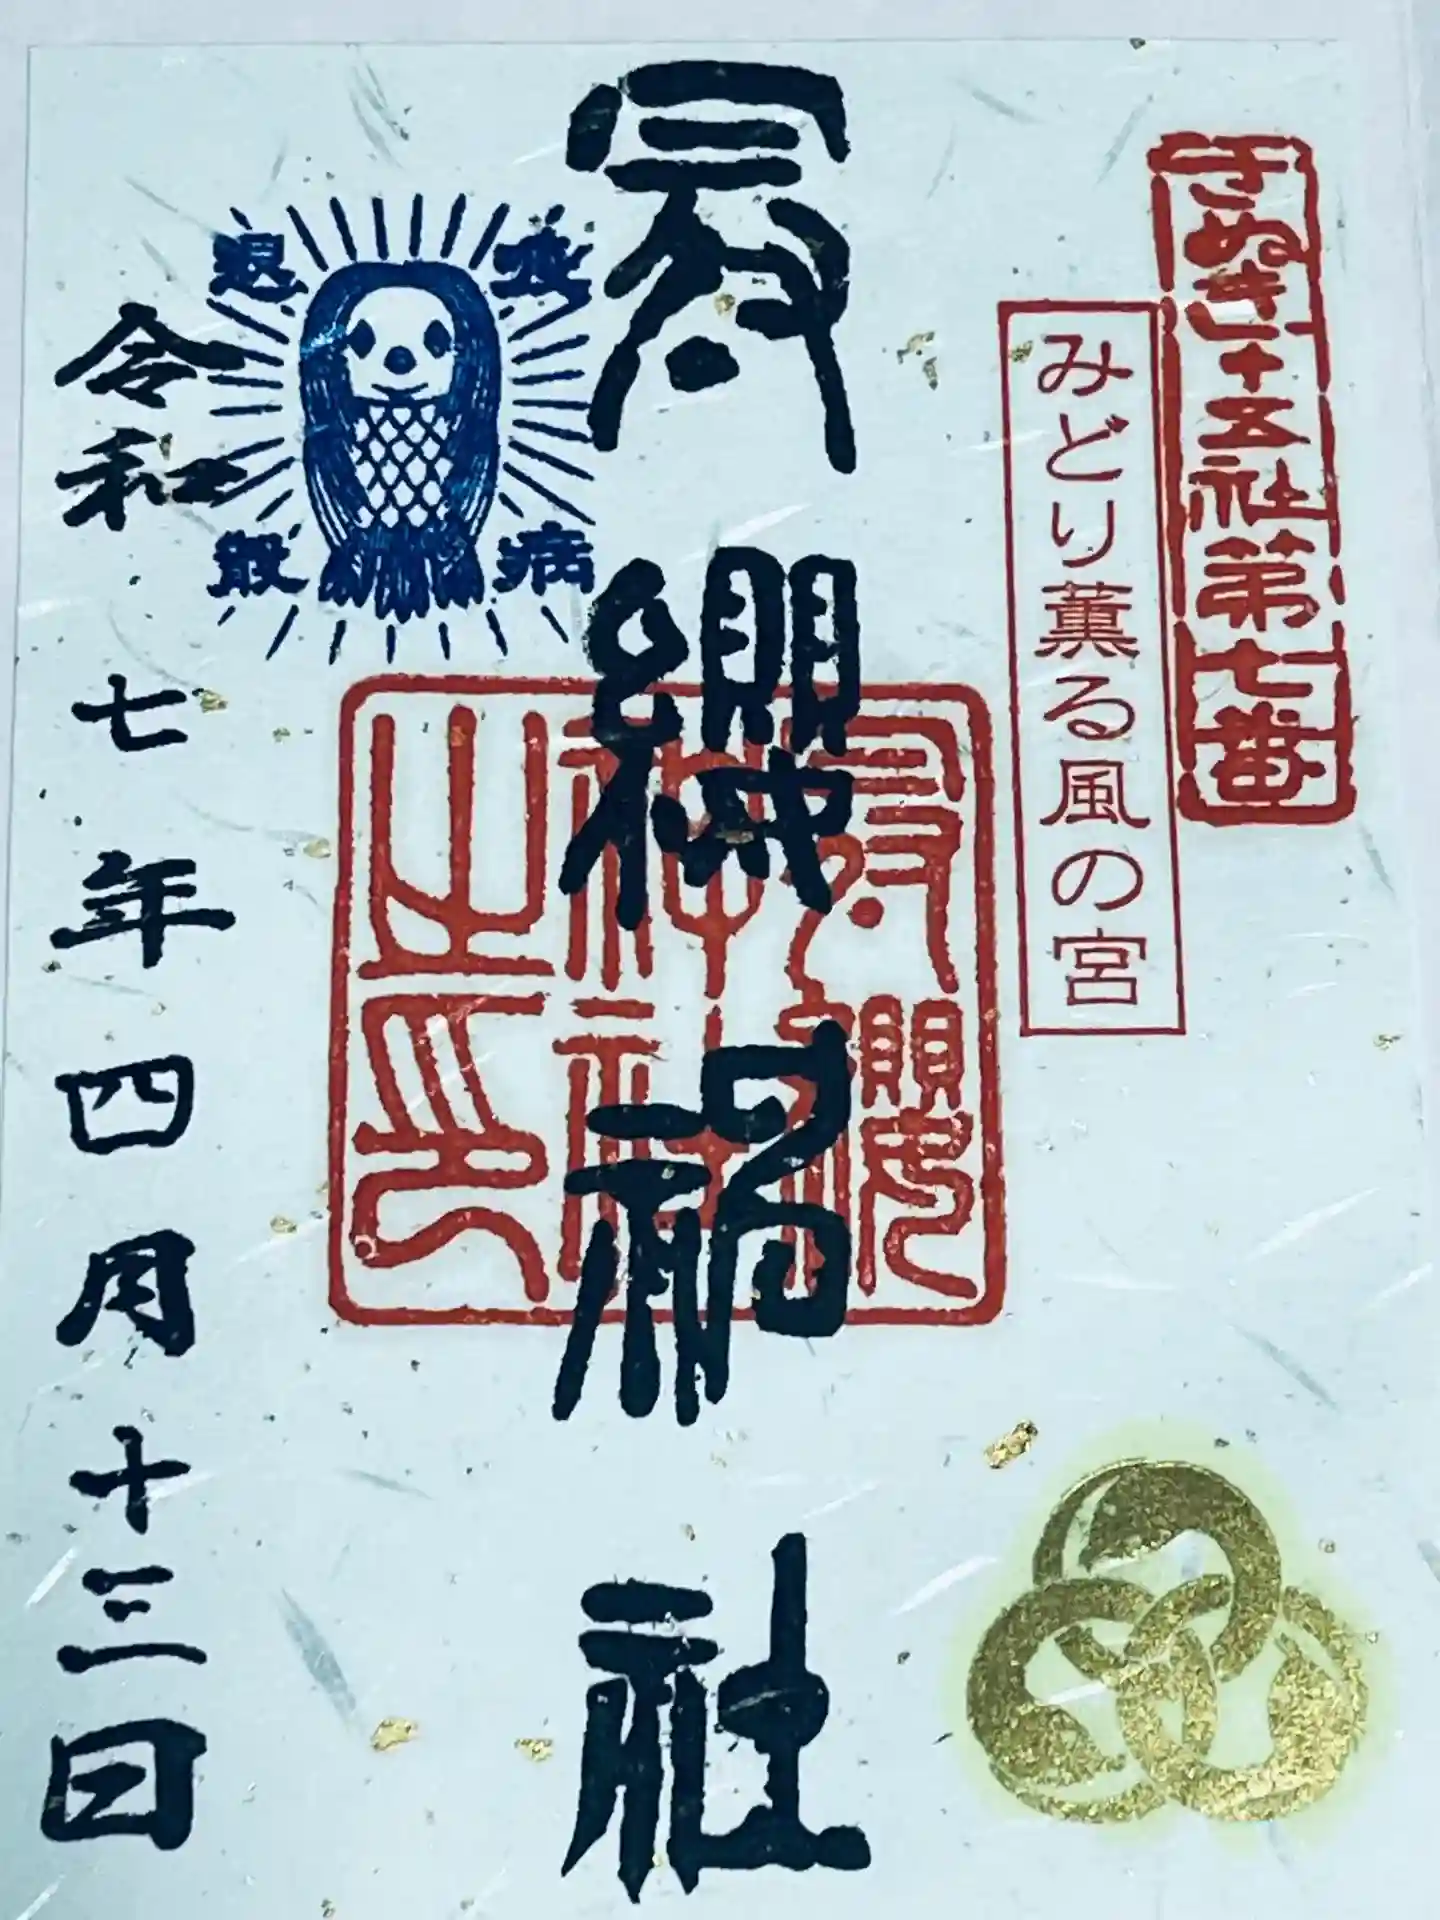 さぬき十五社第七番
みどり薫る風の宮
冠纓神社
冠纓神社之印
疫病
退散
令和七年四月十三日